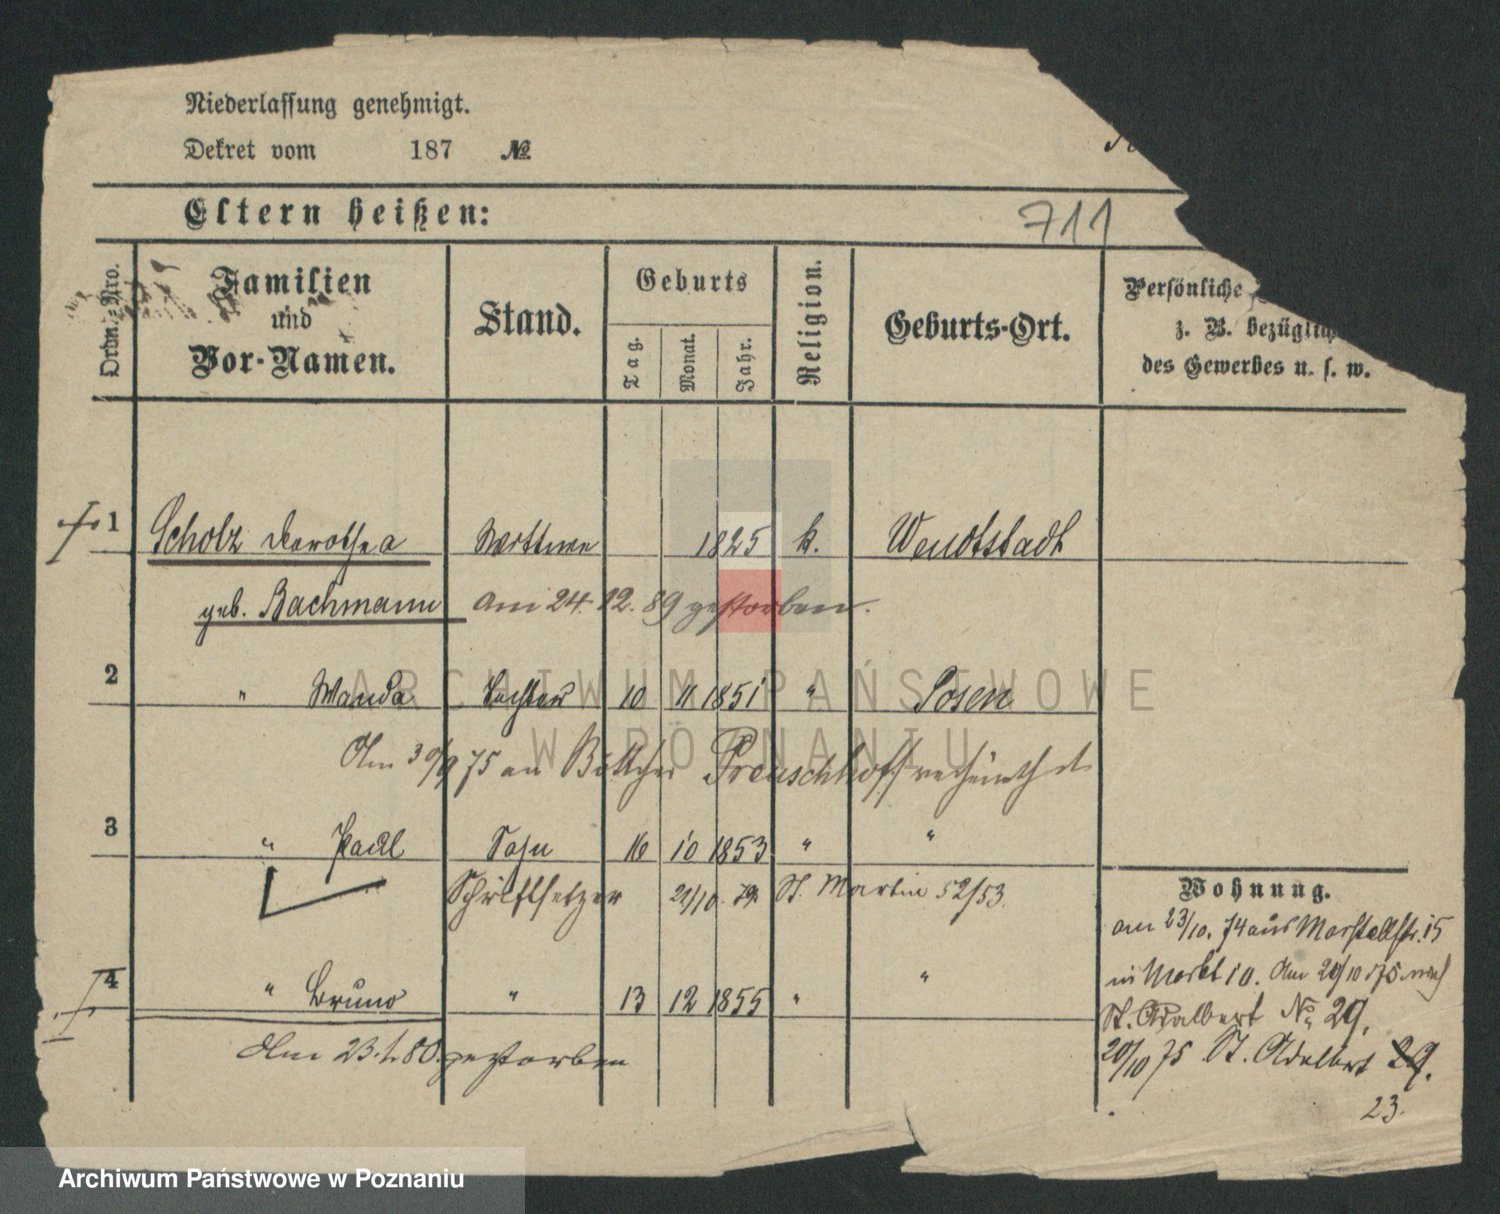 Niederlassung genehmigt.
Dekret vom 187 №
Eltern heißen: 711
Ordn.-Nro.
Familien und Vor-Namen.
Stand.
Geburts
Tag.
Monat.
Jahr.
Religion.
Geburts-Ort.
Persönliche
z. B. bezüglich
des Gewerbes u. s. w.
1 Scholz Dorothea Wittwe 1825 k. Wendtstadt
geb. Bachmann am 24. 12. 89 gestorben.
2 " Wanda Tochter 10 11 1851 " Posen
Am 30/9 75 an Böttcher Preuschhoff verheirathet
3 " Paul Sohn 16 10 1853 " "
Schriftsetzer 21/10. 79. St. Martin 52/53.
4 " Bruno " 13 12 1855 " "
Am 23. 1. 80. gestorben
Wohnung.
am 23/10. 74 aus Marstallstr. 15
in Markt 10. Am 20/10 75 nach
St. Adalbert No 29.
20/10 75 St. Adalbert 29.
23.
ARCHIWUM PAŃSTWOWE
W POZNANIU
Archiwum Państwowe w Poznaniu